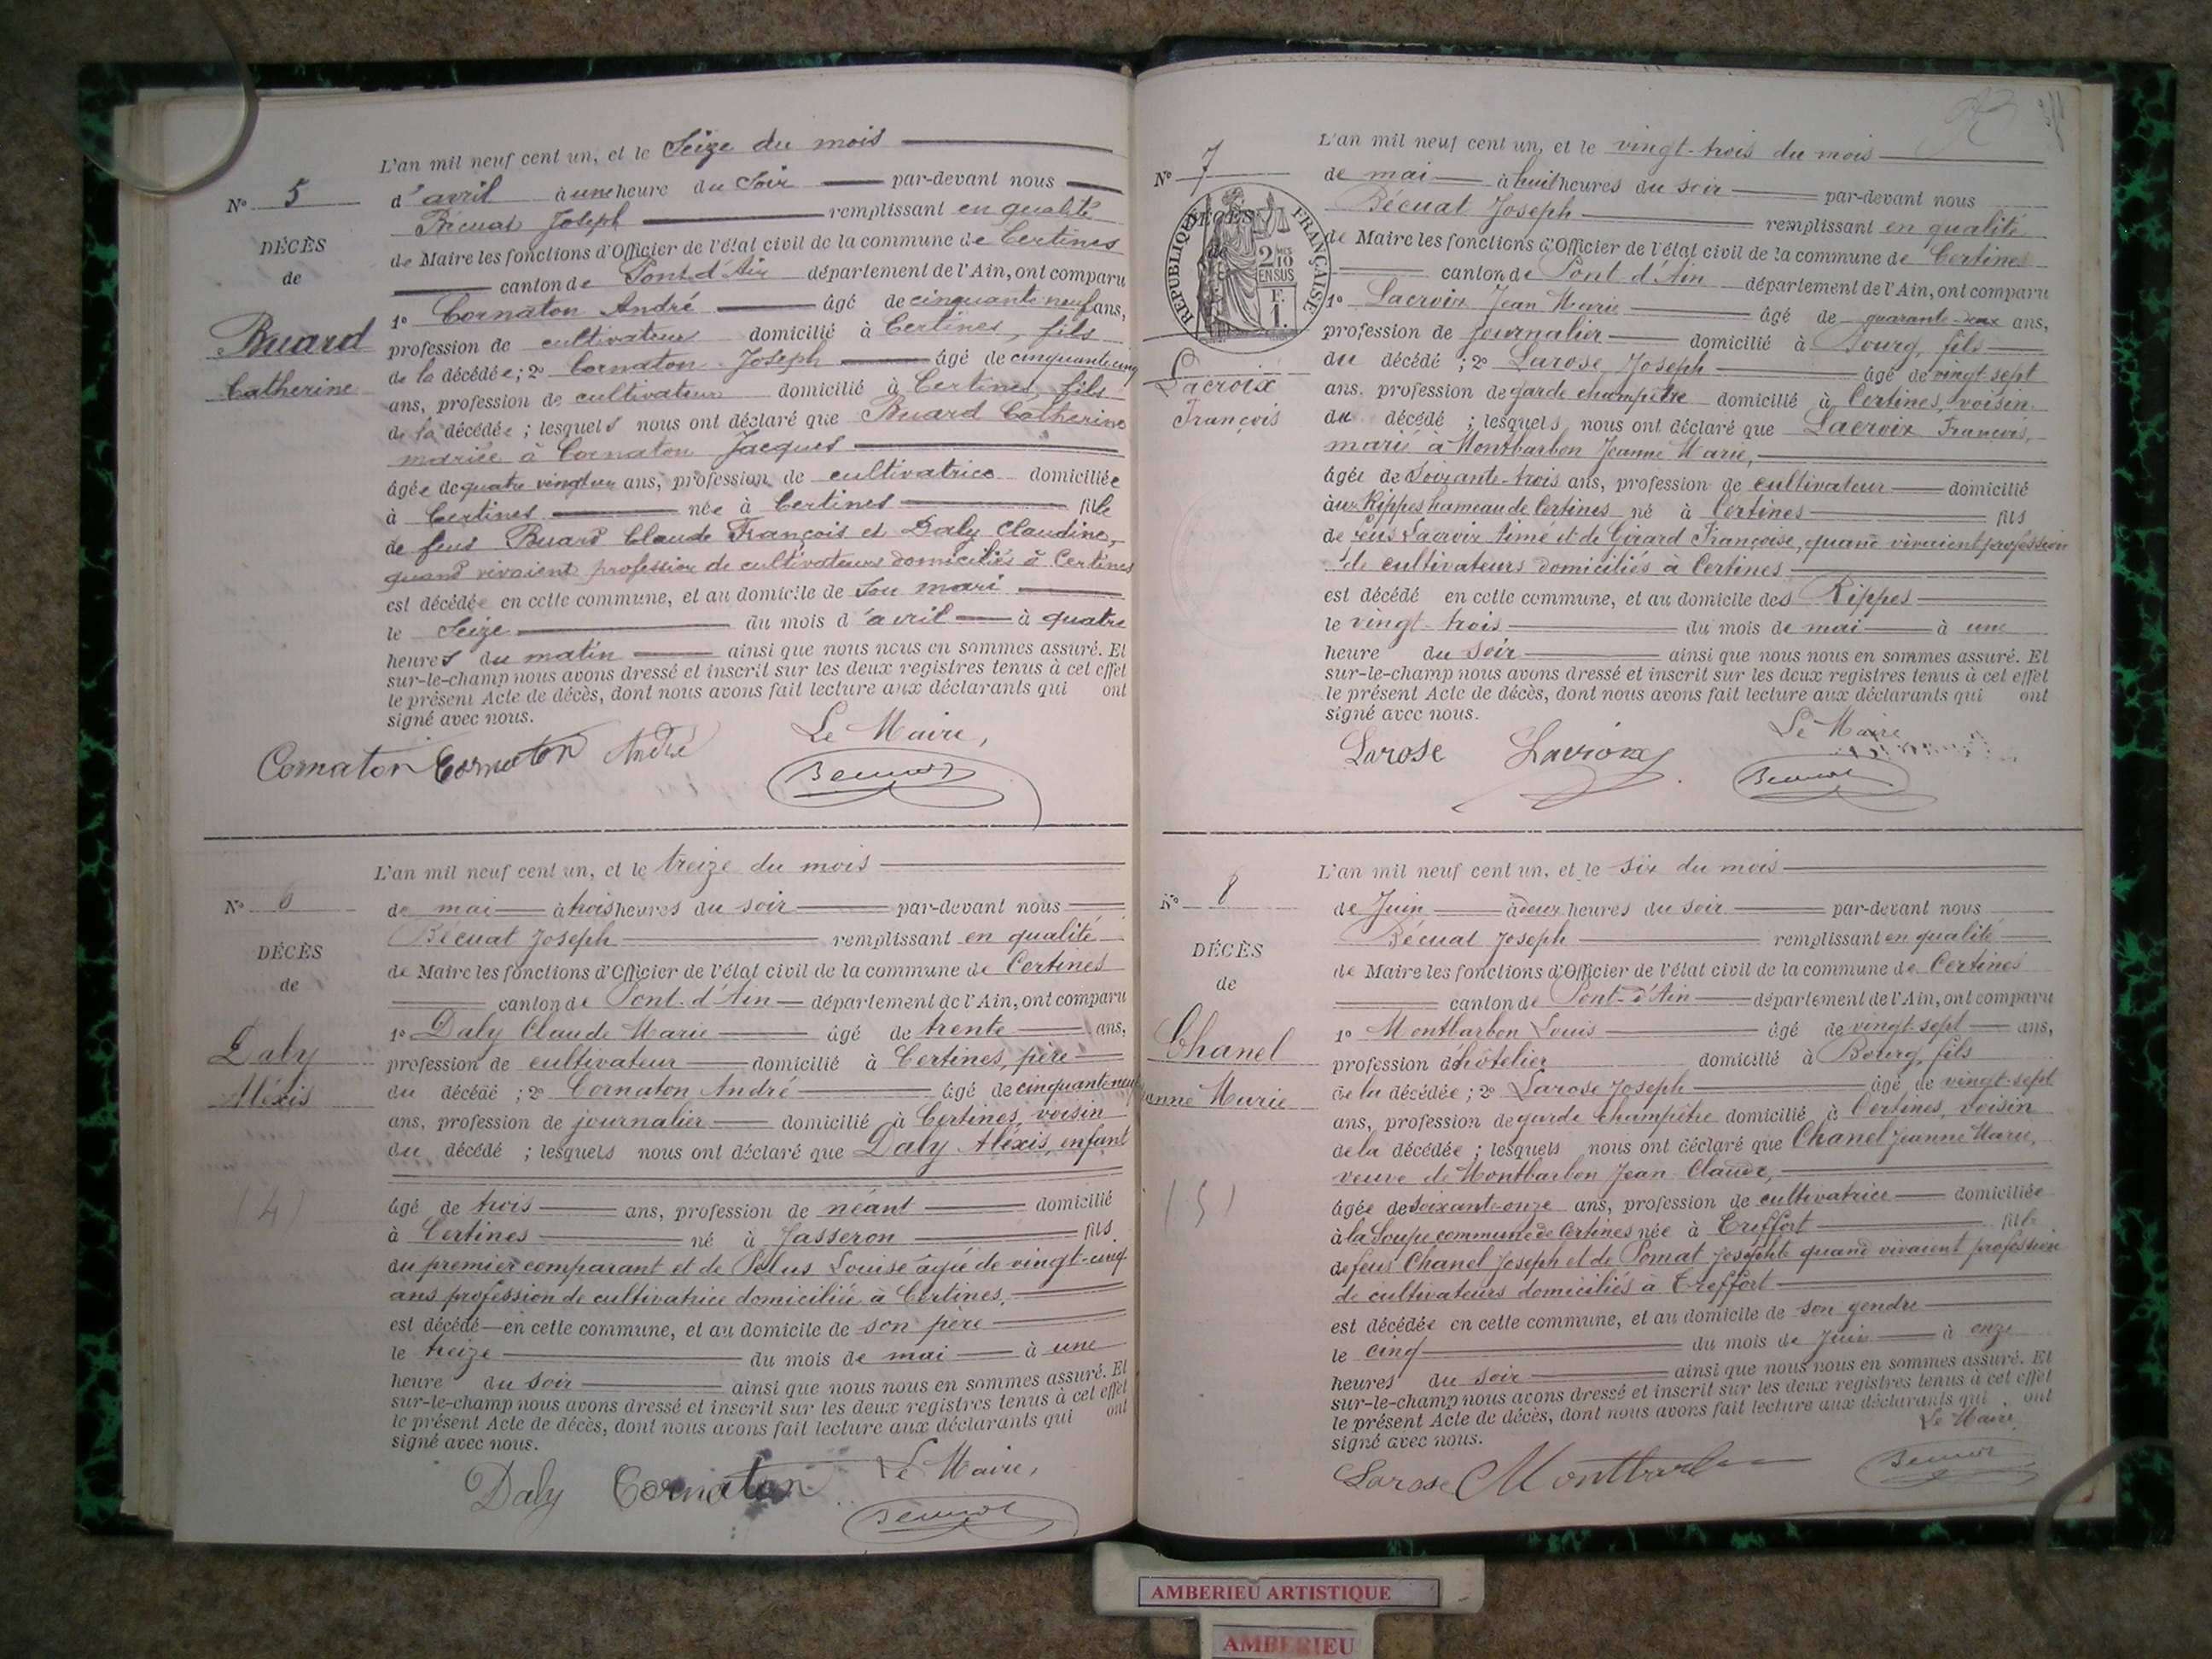 L'an mil neuf cent un, et le Seize du mois
N° 5
d'avril à une heure du Soir par-devant nous
Bécuat Joseph remplissant en qualité
DÉCÈS
de Maire les fonctions d'Officier de l'état civil de la commune de Certines
de
canton de Pont d'Ain département de l'Ain, ont comparu
1° Cornaton André âgé de cinquante neuf ans,
Buard
profession de cultivateur domicilié à Certines, fils
de la décédée ; 2° Cornaton Joseph âgé de cinquante cinq
Catherine
ans, profession de cultivateur domicilié à Certines, fils
de la décédée ; lesquels nous ont déclaré que Buard Catherine
mariée à Cornaton Jacques
âgée de quatre vingt un ans, profession de cultivatrice domiciliée
à Certines née à Certines fille
de feus Buard Claude François et Daly Claudine,
quand vivaient profession de cultivateurs domiciliés à Certines
est décédée en cette commune, et au domicile de Son mari
le Seize du mois d'avril à quatre
heures du matin ainsi que nous nous en sommes assuré. Et
sur-le-champ nous avons dressé et inscrit sur les deux registres tenus à cet effet
le présent Acte de décès, dont nous avons fait lecture aux déclarants qui ont
signé avec nous.
Le Maire,
Cornaton Cornaton André
Bécuat
L'an mil neuf cent un, et le treize du mois
N° 6
de mai à trois heures du soir par-devant nous
Bécuat Joseph remplissant en qualité
DÉCÈS
de Maire les fonctions d'Officier de l'état civil de la commune de Certines
de
canton de Pont-d'Ain département de l'Ain, ont comparu
1° Daly Claude Marie âgé de trente ans,
Daly
profession de cultivateur domicilié à Certines, père
Aléxis
du décédé ; 2° Cornaton André âgé de cinquante-neuf
ans, profession de journalier domicilié à Certines, voisin
du décédé ; lesquels nous ont déclaré que Daly Aléxis, enfant
(4)
âgé de trois ans, profession de néant domicilié
à Certines né à Jasseron fils
du premier comparant et de Louise âgée de vingt-cinq
ans profession de cultivatrice domiciliée à Certines,
est décédé en cette commune, et au domicile de son père
le treize du mois de mai à une
heure du soir ainsi que nous nous en sommes assuré. Et
sur-le-champ nous avons dressé et inscrit sur les deux registres tenus à cet effet
le présent Acte de décès, dont nous avons fait lecture aux déclarants qui ont
signé avec nous.
Daly Cornaton Le Maire,
Bécuat
L'an mil neuf cent un, et le vingt-trois du mois
N° 7
de mai à huit heures du soir par-devant nous
Bécuat Joseph remplissant en qualité
DÉCÈS
de
RÉPUBLIQUE FRANÇAISE
2/10 EN SUS
F. 1.
de Maire les fonctions d'Officier de l'état civil de la commune de Certines
canton de Pont d'Ain département de l'Ain, ont comparu
1° Lacroix Jean Marie âgé de quarante-deux ans,
profession de journalier domicilié à Bourg, fils
du décédé ; 2° Larose Joseph âgé de vingt-sept
Lacroix
ans, profession de garde champêtre domicilié à Certines, voisin
François
du décédé ; lesquels nous ont déclaré que Lacroix François,
marié à Montbarbon Jeanne Marie,
âgée de Soixante-trois ans, profession de cultivateur domicilié
aux Rippes hameau de Certines né à Certines fils
de feus Lacroix Aimé et de Girard Françoise, quand vivaient profession
de cultivateurs domiciliés à Certines
est décédé en cette commune, et au domicile des Rippes
le vingt-trois du mois de mai à une
heure du soir ainsi que nous nous en sommes assuré. Et
sur-le-champ nous avons dressé et inscrit sur les deux registres tenus à cet effet
le présent Acte de décès, dont nous avons fait lecture aux déclarants qui ont
signé avec nous.
Le Maire
Larose Lacroix
Bécuat
L'an mil neuf cent un, et le six du mois
N° 8
de Juin à deux heures du soir par-devant nous
Bécuat Joseph remplissant en qualité
DÉCÈS
de Maire les fonctions d'Officier de l'état civil de la commune de Certines
de
canton de Pont-d'Ain département de l'Ain, ont comparu
1° Montbarbon Louis âgé de vingt-sept ans,
Chanel
profession d'hôtelier domicilié à Bourg, fils
anne Marie
de la décédée ; 2° Larose Joseph âgé de vingt-sept
ans, profession de garde champêtre domicilié à Certines, voisin
de la décédée ; lesquels nous ont déclaré que Chanel Jeanne Marie,
veuve de Montbarbon Jean Claude,
(5)
âgée de soixante-onze ans, profession de cultivatrice domiciliée
à la Soupe commune de Certines née à Treffort fille
de feus Chanel Joseph et de Pomat Josephte quand vivaient profession
de cultivateurs domiciliés à Treffort
est décédée en cette commune, et au domicile de son gendre
le cinq du mois de Juin à onze
heures du soir ainsi que nous nous en sommes assuré. Et
sur-le-champ nous avons dressé et inscrit sur les deux registres tenus à cet effet
le présent Acte de décès, dont nous avons fait lecture aux déclarants qui ont
signé avec nous.
Le Maire
Larose Montbarbon
Bécuat
AMBERIEU ARTISTIQUE
AMBERIEU